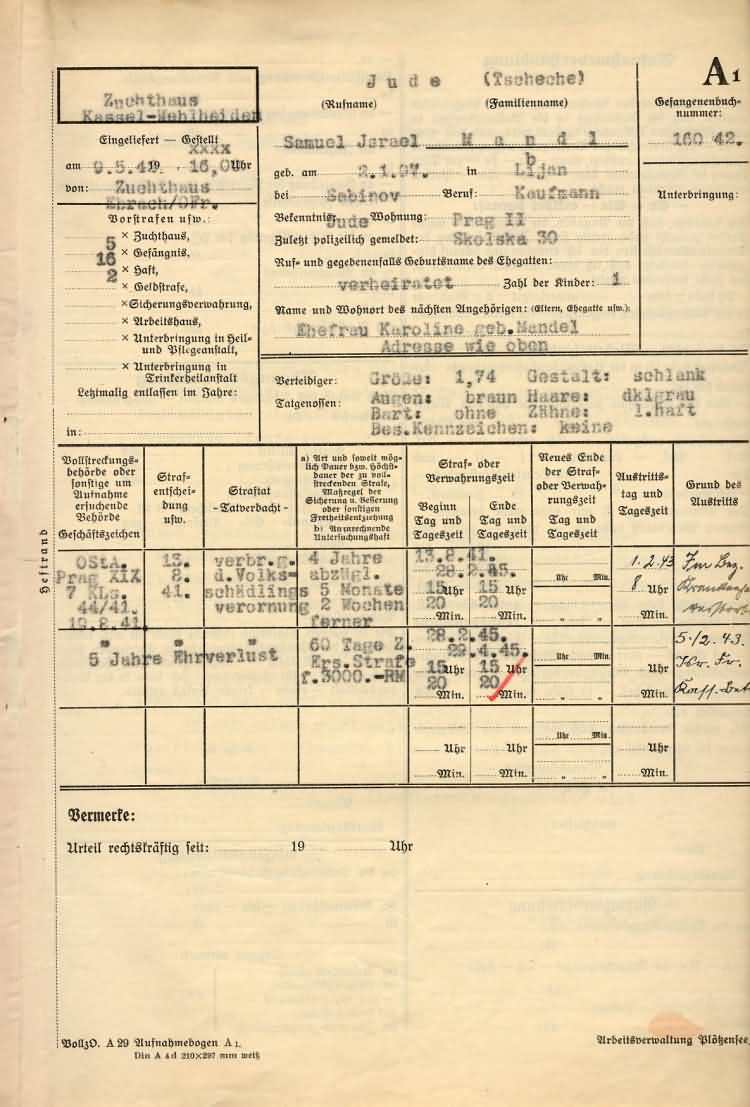 Jude (Tscheche)
A1
Zuchthaus
Kassel-Wehlheiden
(Rufname) (Familienname)
Gefangenenbuch-
nummer:
160 42.
Eingeliefert — Gestellt
xxxx
am 9.5.42 19 , 16,00 Uhr
von: Zuchthaus
Ebrach/OFr.
Samuel Jsrael Mandl
geb. am 2.1.07. in Lijan
b
bei Sabinov Beruf: Kaufmann
Unterbringung:
Bekenntnis: Jude Wohnung: Prag II
Zuletzt polizeilich gemeldet: Skolska 30
Ruf- und gegebenenfalls Geburtsname des Ehegatten:
verheiratet Zahl der Kinder: 1
Name und Wohnort des nächsten Angehörigen: (Eltern, Ehegatte usw.):
Ehefrau Karoline geb.Mandel
Adresse wie oben
Vorstrafen usw.:
5 × Zuchthaus,
16 × Gefängnis,
2 × Haft,
× Geldstrafe,
× Sicherungsverwahrung,
× Arbeitshaus,
× Unterbringung in Heil-
und Pflegeanstalt,
× Unterbringung in
Trinkerheilanstalt
Letztmalig entlassen im Jahre:
in:
Verteidiger: Größe: 1,74 Gestalt: schlank
Tatgenossen: Augen: braun Haare: dklgrau
Bart: ohne Zähne: l.haft
Bes.Kennzeichen: keine
Heftrand
Vollstreckungs-
behörde oder
sonstige um
Aufnahme
ersuchende
Behörde
Geschäftszeichen
Straf-
entschei-
dung
usw.
Straftat
-Tatverdacht-
a) Art und soweit mög-
lich Dauer bzw. Höchst-
dauer der zu voll-
streckenden Strafe,
Maßregel der
Sicherung u. Besserung
oder sonstigen
Freiheitsentziehung
b) Anzurechnende
Untersuchungshaft
Straf- oder
Verwahrungszeit
Beginn
Tag und
Tageszeit
Ende
Tag und
Tageszeit
Neues Ende
der Straf-
oder Verwah-
rungszeit
Tag und
Tageszeit
Austritts-
tag und
Tageszeit
Grund des
Austritts
OStA.
Prag XIX
7 KLs.
44/41.
19.8.41
13.
8.
41.
verbr.g.
d.Volks-
schädlings
verornung
4 Jahre
abzügl.
5 Monate
2 Wochen
ferner
13.8.41.
28.2.45.
15 Uhr 15 Uhr
20 Min. 20 Min.
Uhr Min.
" "
1.2.43
8 Uhr
Min.
" " "
5 Jahre Ehrverlust
60 Tage Z.
Ers.Strafe
f.3000.-RM
28.2.45.
29.4.45.
15 Uhr 15 Uhr
20 Min. 20 Min.
Uhr Min.
" "
Uhr
Min.
5./2.43.
Uhr Uhr
Min. Min.
Uhr Min.
" "
Uhr
Min.
Vermerke:
Urteil rechtskräftig seit: 19 Uhr
VollzO. A 29 Aufnahmebogen A 1.
Din A 4d 210×297 mm weiß
Arbeitsverwaltung Plötzensee